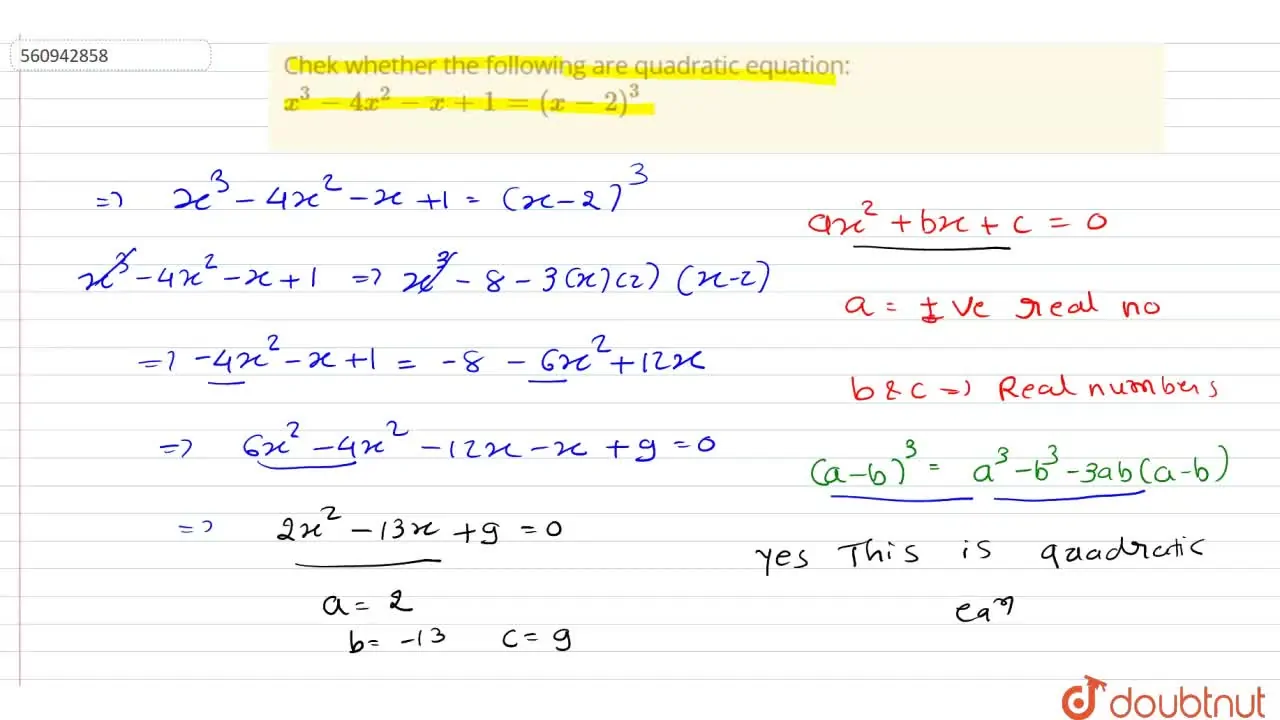 560942858
Chek whether the following are quadratic equation:
x³ − 4x² − x + 1 = (x − 2)³
=> x³ − 4x² − x + 1 = (x − 2)³
x³ − 4x² − x + 1 => x³ − 8 − 3(x)(2) (x−2)
=> −4x² − x + 1 = −8 − 6x² + 12x
=> 6x² − 4x² − 12x − x + 9 = 0
=> 2x² − 13x + 9 = 0
a = 2
b = −13 c = 9
ax² + bx + c = 0
a = ±ve real no
b & c => Real numbers
(a−b)³ = a³ − b³ − 3ab(a−b)
yes This is quadratic
eqⁿ
doubtnut